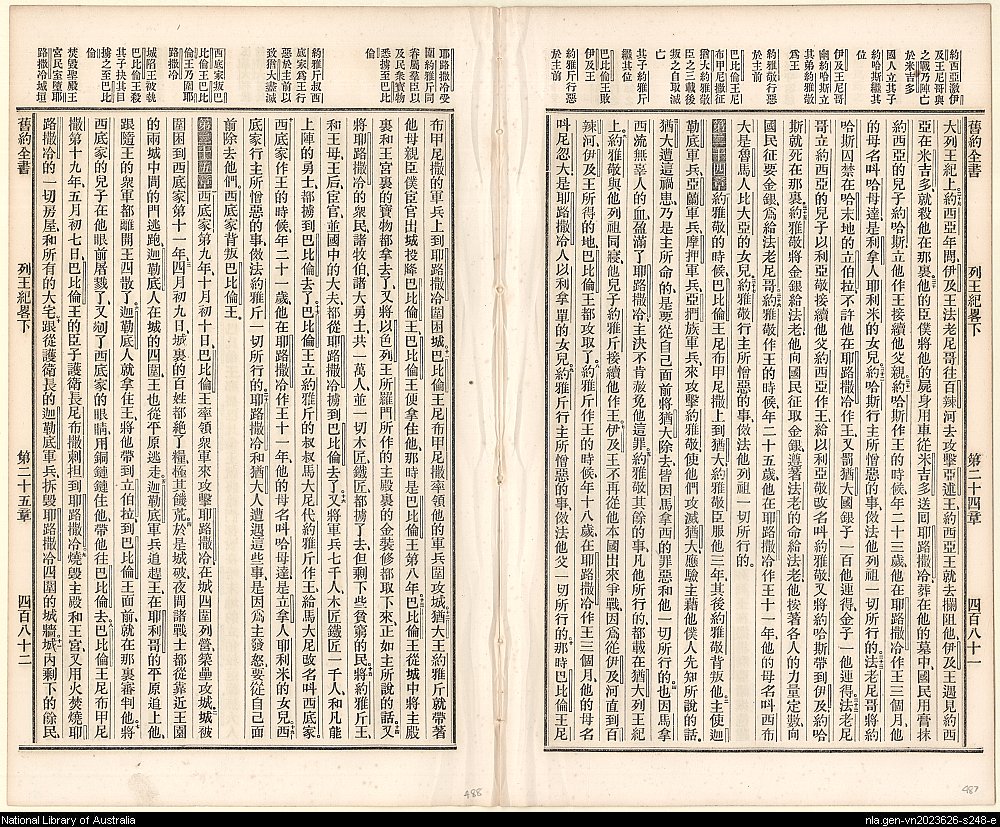 約西亞敵伊
及王尼哥與
之戰乃陣亡
於米吉多
國人立其子
約哈斯繼其
位
伊及王尼哥
幽約哈斯立
其弟約雅敬
為王
約雅敬行惡
於主前
巴比倫王尼
布甲尼撒征
猶大約雅敬
臣之三載後
叛之自取滅
亡
其子約雅斤
繼其位
巴比倫王敗
伊及王
約雅斤行惡
於主前
舊約全書 列王紀畧下 第二十四章 四百八十一
大列王紀上約西亞年間伊及王法老尼哥往百辣河去攻擊亞述王約西亞王就去攔阻他伊及王遇見約西
亞在米吉多就殺他在那裏他的臣僕將他的屍身用車從米吉多送囘耶路撒冷葬在他的墓中國民用膏抹
約西亞的兒子約哈斯立他作王接續他父親約哈斯作王的時候年二十三歲他在耶路撒冷作王三個月他
的母名呌哈母達是利拿人耶利米的女兒約哈斯行主所憎惡的事傚法他列祖一切所行的法老尼哥將約
哈斯囚禁在哈末地的立伯拉不許他在耶路撒冷作王又罰猶大國銀子一百他連得金子一他連得法老尼
哥立約西亞的兒子以利亞敬接續他父約西亞作王給以利亞敬攺名呌約雅敬又將約哈斯帶到伊及約哈
斯就死在那裏約雅敬將金銀給法老他向國民征取金銀遵著法老的命給法老他按著各人的力量定數向
國民征要金銀為給法老尼哥約雅敬作王的時候年二十五歲他在耶路撒冷作王十一年他的母名呌西布
大是魯馬人比大亞的女兒約雅敬行主所憎惡的事傚法他列祖一切所行的
第二十四章約雅敬的時候巴比倫王尼布甲尼撒上到猶大約雅敬臣服他三年其後約雅敬背叛他主使迦
勒底軍兵亞蘭軍兵摩押軍兵亞捫族軍兵來攻擊約雅敬使他們攻滅猶大應驗主藉他僕人先知所說的話
猶大遭這禍患乃是主所命的是要從自己面前將猶大除去皆因馬拿西的罪惡和他一切所行的也因馬拿
西流無辜人的血盈滿了耶路撒冷主決不肯赦免他這罪約雅敬其餘的事凡他所行的都載在猶大列王紀
上約雅敬與他列祖同寢他兒子約雅斤接續他作王伊及王不再從他本國出來爭戰因為從伊及河直到百
辣河伊及王所得的地巴比倫王都攻取了約雅斤作王的時候年十八歲在耶路撒冷作王三個月他的母名
呌尼忽大是耶路撒冷人以利拿單的女兒約雅斤行主所憎惡的事傚法他父一切所行的那時巴比倫王尼
耶路撒冷受
圍約雅斤同
眷屬羣臣以
及民衆寶物
悉擄至巴比
倫
約雅斤叔西
底家為王行
惡於主前以
致猶大盡滅
西底家叛巴
比倫王巴比
倫王乃圍耶
路撒冷
城陷王被戮
巴比倫王殺
其子抉其目
擄之至巴比
倫
焚毀聖殿王
宮民室墮耶
路撒冷城垣
布甲尼撒的軍兵上到耶路撒冷圍困城巴比倫王尼布甲尼撒率領他的軍兵圍攻城猶大王約雅斤就帶著
他母親臣僕宦官出城投降巴比倫王巴比倫王便拿住他那時是巴比倫王第八年巴比倫王從城中將主殿
裏和王宮裏的寶物都拿去了又將以色列王所羅門所作的主殿裏的金裝修都取下來正如主所說的話又
將耶路撒冷的衆民諸牧伯諸大勇士共一萬人並一切木匠鐵匠都擄了去但剩下些貧窮的民將約雅斤王
和王母王后宦官並國中的大夫都從耶路撒冷擄到巴比倫去了又將軍兵七千人木匠鐵匠一千人和凡能
上陣的勇士都擄到巴比倫去了巴比倫王立約雅斤的叔叔馬大尼代約雅斤作王給馬大尼攺名呌西底家
西底家作王的時候年二十一歲他在耶路撒冷作王十一年他的母名呌哈母達是立拿人耶利米的女兒西
底家行主所憎惡的事傚法約雅斤一切所行的耶路撒冷和猶大人遭遇這些事是因為主發怒要從自己面
前除去他們西底家背叛巴比倫王
第二十五章西底家第九年十月初十日巴比倫王率領衆軍來攻擊耶路撒冷在城四圍列營築壘攻城城被
圍困到西底家第十一年四月初九日城裏的百姓都絶了糧極其饑荒於是城破夜間諸戰士都從靠近王園
的兩城中間的門逃跑迦勒底人在城的四圍王也從平原逃走迦勒底軍兵追趕王在耶利哥的平原追上他
跟隨王的衆軍都離開王四散了迦勒底人就拿住王將他帶到立伯拉到巴比倫王面前就在那裏審判他將
西底家的兒子在他眼前屠戮了又剜了西底家的眼睛用銅鏈鏈住他帶他往巴比倫去巴比倫王尼布甲尼
撒第十九年五月初七日巴比倫王的臣子護衛長尼布撒剌担到耶路撒冷燒毀主殿和王宮又用火焚燒耶
路撒冷的一切房屋和所有的大宅跟從護衛長的迦勒底軍兵拆毀耶路撒冷四圍的城牆城內剩下的餘民
舊約全書 列王紀畧下 第二十五章 四百八十二
488
487
National Library of Australia
nla.gen-vn2023626-s248-e